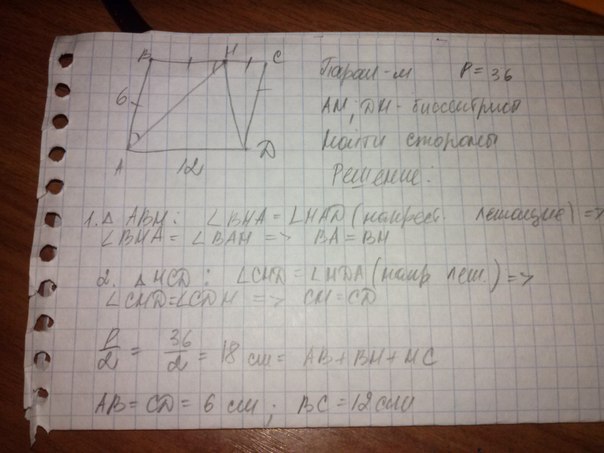 B H C
6
A 12 D
Парал-м P = 36
AH; DH - биссектрисы
Найти стороны
Решение:
1. △ ABH: ∠BHA = ∠HAD (накрест. лежащие) =>
∠BHA = ∠BAH => BA = BH
2. △HCD: ∠CHD = ∠HDA (накр леж.) =>
∠CHD = ∠CDH => CH = CD
P/2 = 36/2 = 18 см = AB + BH + HC
AB = CD = 6 см; BC = 12 см